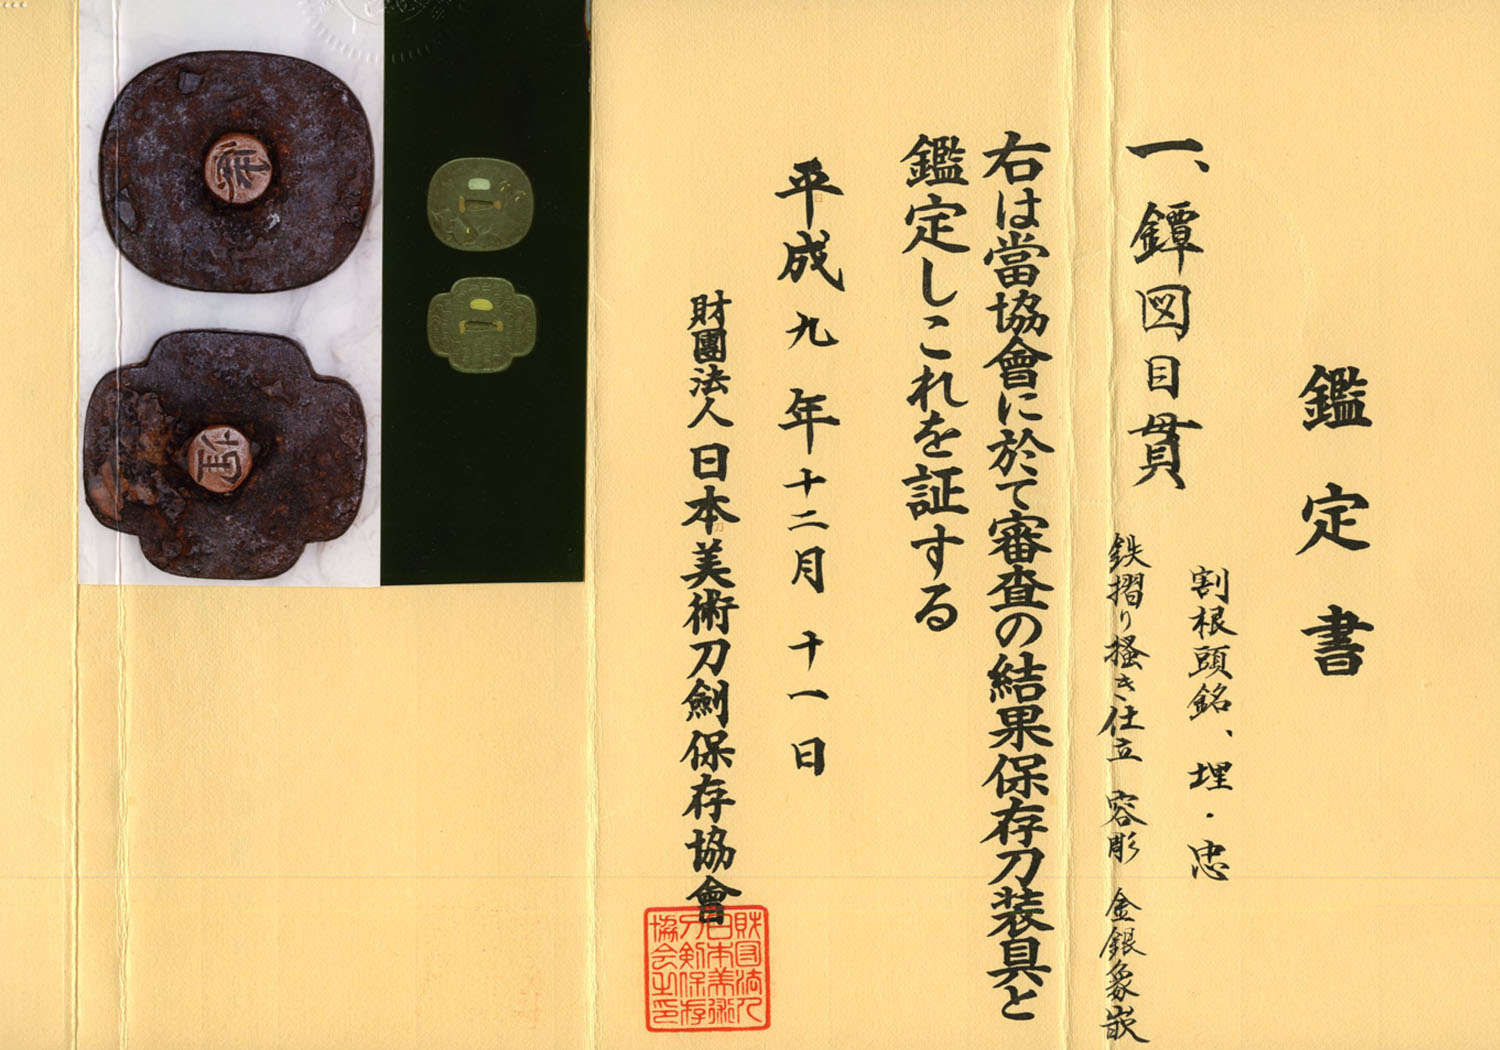 鑑定書
割根頭銘、埋・忠
一、鐔図目貫
鉄摺り掻き仕立 容彫 金銀象嵌
右は當協會に於て審査の結果保存刀装具と
鑑定しこれを証する
平成九年十二月十一日
財團法人日本美術刀劍保存協會
財団法人
日本美術
刀剣保存
協会之印
忠
埋